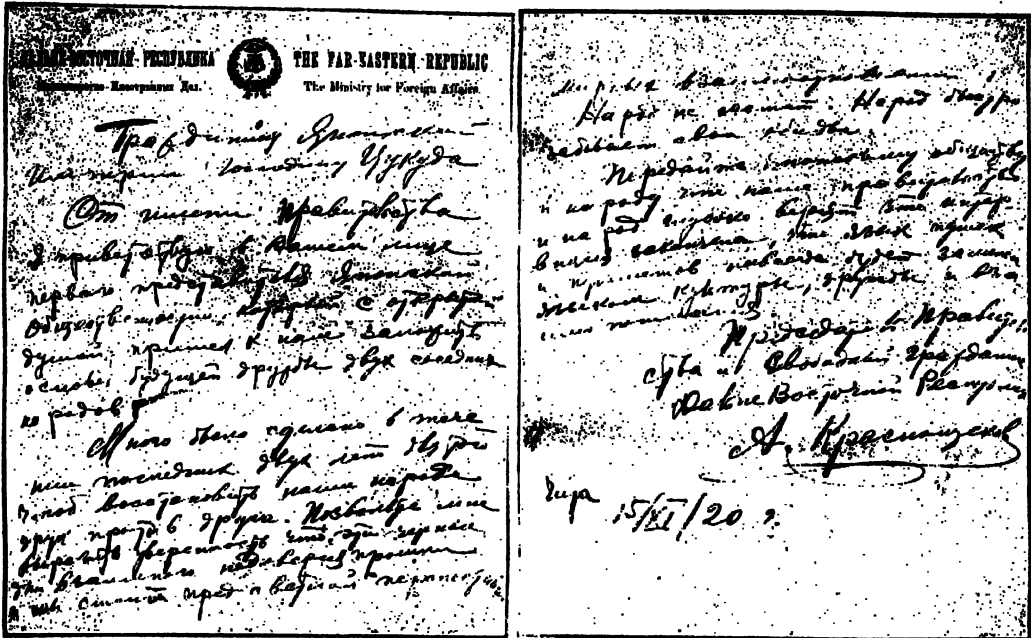 ДАЛЬНЕ-ВОСТОЧНАЯ РЕСПУБЛИКА
Министерство Иностранных Дел.
THE FAR-EASTERN REPUBLIC
The Ministry for Foreign Affairs.
Гражданину Японской
Империи господину Цукуда
От имени Правительства
я приветствую в вашем лице
первого представителя Японской
Общественности, который с открытой
душой пришел к нам заложить
основы будущей дружбы двух соседних
народов
Много было сделано в тече
нии последних двух лет
чтоб восстановить наши народы
друг против друга. Позвольте мне
выразить уверенность что эти черные
дни взаимного недоверия прошли
и мы стоим пред
мирных взаимоотношений
Народ не мстит. Народ быстро
забывает свои обиды.
Передайте японскому обществу
и народу что наше правительство
и народ глубоко верят что
закончена, что язык пушек
и навсегда будет заменен
языком культуры, дружбы и вза
имо
Председатель Правитель
ства и Свободный гражданин
Дальне Восточной Республики
А. Краснощеков
Чита
15/XI/20 г.